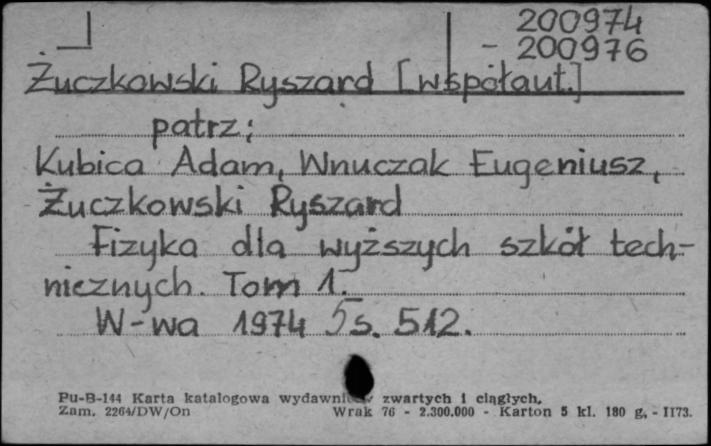 200974
- 200976
Żuczkowski Ryszard [współaut.]
patrz:
Kubica Adam, Wnuczak Eugeniusz,
Żuczkowski Ryszard
Fizyka dla wyższych szkół tech-
nicznych. Tom 1.
W-wa 1974 s. 512.
Pu-B-144 Karta katalogowa zwartych i ciągłych.
Zam. 2264/DW/On Wrak 76 - 2.300.000 - Karton 5 kl. 180 g. - II73.